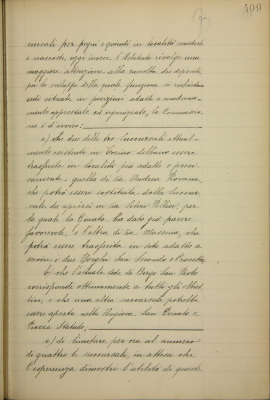 409
cursali per pegni e quindi in località modeste
e nascoste, oggi invece l'Istituto rivolge una
maggiore attenzione alla raccolta dei depositi,
per lo sviluppo della quale funzione si richiedono
sedi situate in posizioni adatte e moderna-
mente apprestate ed organizzate, la Commissio-
ne è d'avviso:
a) che due delle tre Succursali attual-
mente esistenti in Torino debbano essere
trasferite in località più adatte e preci-
samente: quella di Via
che potrà essere sostituita dalla Succur-
sale da aprirsi in Via Silvio Pellico, per
la quale la Giunta ha dato già parere
favorevole, e l'altra di Via Massena, che
potrà essere trasferita in sito adatto a
servire i due Borghi San Secondo e Crocetta
b) che l'attuale sede di Borgo San Paolo
corrisponde ottimamente a tutti gli obiet-
tivi, e che una altra succursale potrebbe
essere aperta nella Regione San Donato e
Piazza Statuto.
c) di limitare per ora al numero
di quattro le succursali, in attesa che
l'esperienza dimostri l'utilità di queste